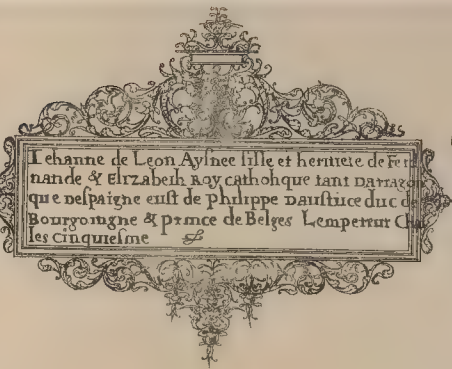 Iehanne de Leon Aysnee fille et heritiere de Ferdi
nande & Elizabeth Roy catholique tant Darragon
que despaigne eust de Philippe Daustrice duc de
Bourgoingne & prince de Belges Lempereur Char
les cinquiesme